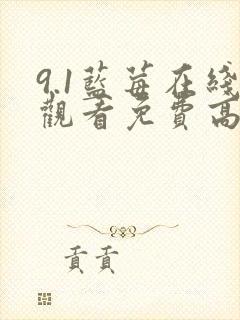 9.1藍莓在綫
觀看免費高
貢貢